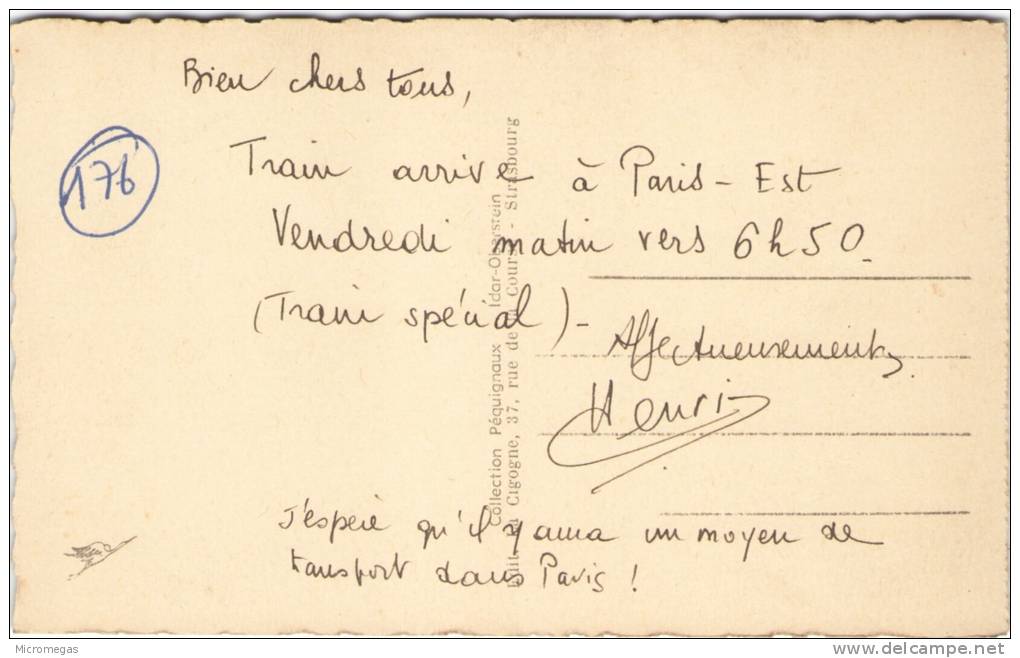 Bien chers tous,
176
Train arrive à Paris-Est
Vendredi matin vers 6h50.
(Train spécial)-
Affectueusement,
Henri
J'espère qu'il y aura un moyen de
transport dans Paris !
Collection Péquignaux Idar-Oberstein
Cigogne, 37, rue de la Course - Strasbourg
Micromegas
delcampe.net